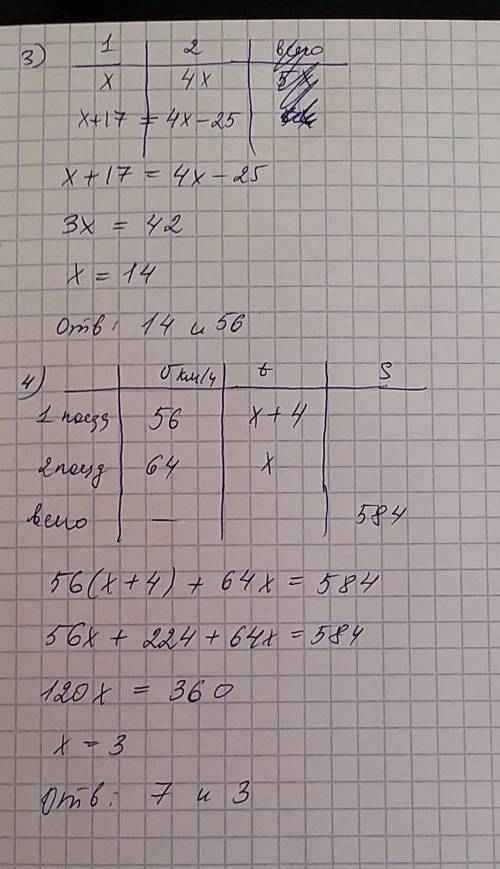 3) 1 2 всего
x 4x 5x
x+17 = 4x-25
x+17 = 4x-25
3x = 42
x = 14
Отв: 14 и 56
4) υ км/ч t S
1 поезд 56 x+4
2 поезд 64 x
всего — 584
56(x+4) + 64x = 584
56x + 224 + 64x = 584
120x = 360
x = 3
Отв: 7 и 3